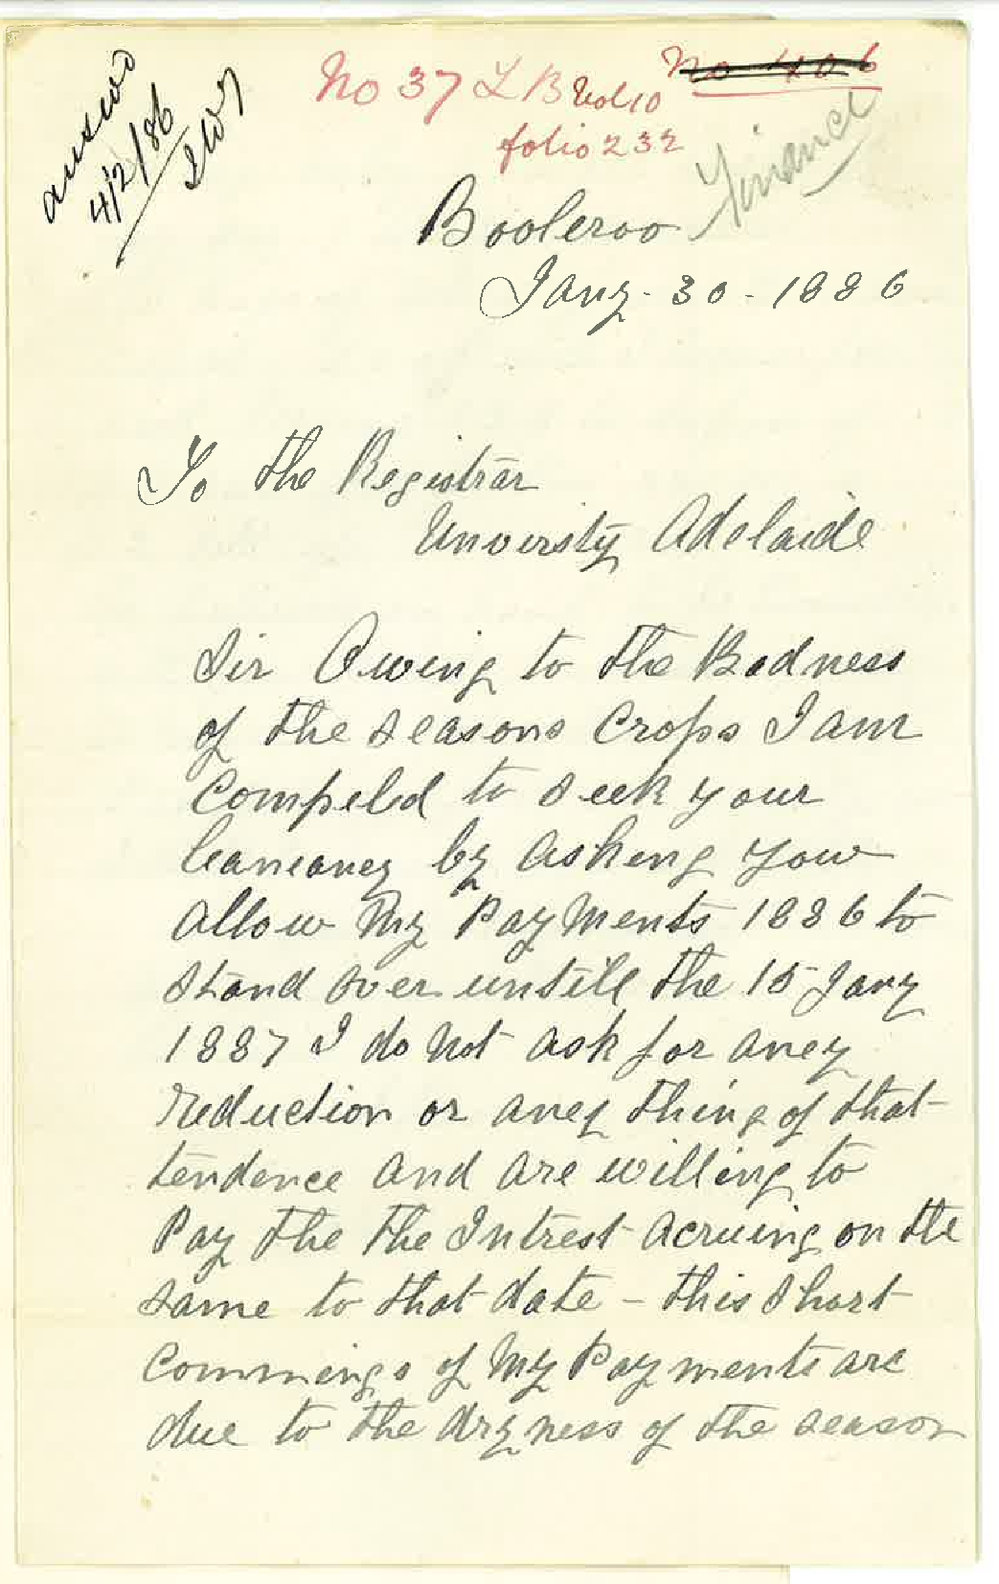 4/2/86
No 37 LB Vol 10
No 406
folio 232
Finance
Booleroo
Jany - 30 - 1886
To the Registrar
Unversity Adelaide
Sir Owing to the Badness
of the seasons Crops I am
Compeld to seek your
leaneaney by Asking you
allow My PayMents 1886 to
stand over untill the 15 Jany
1887 I do Not ask for aney
reduction or aney thing of that
tendence and are willing to
Pay the the Intrest acruing on the
same to that date - this short
Commings of My Payments are
due to the dryness of the season